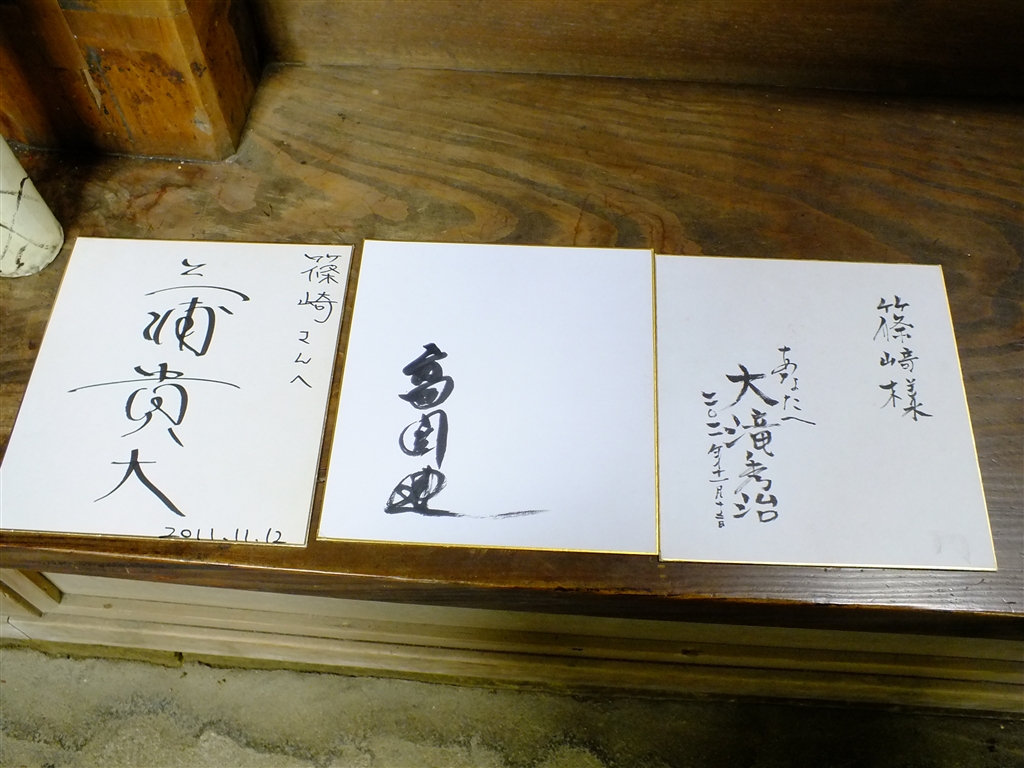 篠崎さんへ
三浦貴大
2011.11.12
高倉健
篠﨑様
あなたへ
大滝秀治
二〇一一年十一月十二日